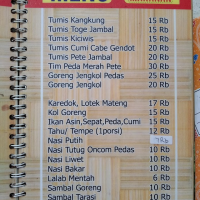 Tumis Kangkung 15 Rb
Tumis Toge Jambal 15 Rb
Tumis Kiciwis 15 Rb
Tumis Cumi Cabe Gendot 20 Rb
Tumis Pete Jambal 20 Rb
Tim Peda Merah Pete 30 Rb
Goreng Jengkol Pedas 25 Rb
Goreng Jengkol 20 Rb
Karedok, Lotek Mateng 17 Rb
Kol Goreng 15 Rb
Ikan Asin,Sepat,Peda,Cumi 15 Rb
Tahu/ Tempe (1porsi) 12 Rb
Nasi Putih
Nasi Tutug Oncom Pedas 10 Rb
Nasi Liwet 10 Rb
Nasi Bakar 10 Rb
Lalab Mentah 6 Rb
Sambal Goreng 10 Rb
Sambal Tarasi 10 Rb